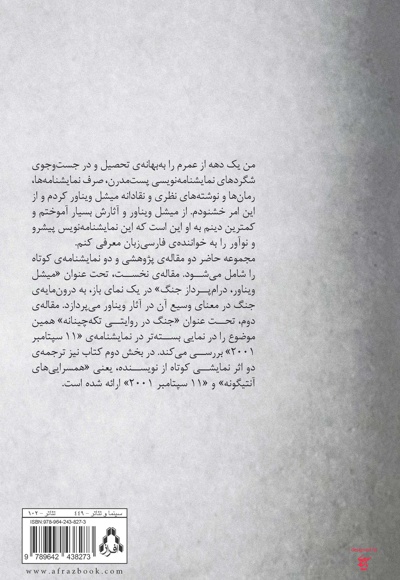 من یک دهه از عمرم را به‌بهانه‌ی تحصیل و در جست‌وجوی
شگردهای نمایشنامه‌نویسی پست‌مدرن، صرف نمایشنامه‌ها،
رمان‌ها و نوشته‌های نظری و نقادانه میشل ویناور کردم و از
این امر خشنودم. از میشل ویناور و آثارش بسیار آموختم و
کمترین دینم به او این است که این نمایشنامه‌نویس پیشرو
و نوآور را به خواننده‌ی فارسی‌زبان معرفی کنم.
مجموعه حاضر دو مقاله‌ی پژوهشی و دو نمایشنامه‌ی کوتاه
را شامل می‌شود. مقاله‌ی نخست، تحت عنوان «میشل
ویناور، درام‌پرداز جنگ» در یک نمای باز، به درون‌مایه‌ی
جنگ در معنای وسیع آن در آثار ویناور می‌پردازد. مقاله‌ی
دوم، تحت عنوان «جنگ در روایتی تکه‌چینانه» همین
موضوع را در نمایی بسته‌تر در نمایشنامه‌ی «۱۱ سپتامبر
۲۰۰۱» بررسی می‌کند. در بخش دوم کتاب نیز ترجمه‌ی
دو اثر نمایشی کوتاه از نویسنده، یعنی «همسرایی‌های
آنتیگونه» و «۱۱ سپتامبر ۲۰۰۱» ارائه شده است.
سینما و تئاتر - ۴۴۹ تئاتر - ۱۰۲
ISBN:978-964-243-827-3
9 789642 438273
افراز
www.afrazbook.com